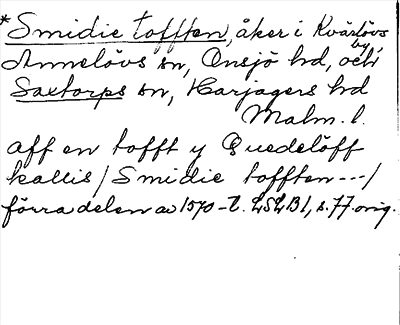 *Smidie tofften, åker i Kvärlövs
by,
Annelövs sn, Onsjö hd, och i
Saxtorps sn, Harjagers hd
Malm. l.
aff en tofft y Quedelöff
kallis / Smidie tofften --- /
förra delen av 1570-t. LSLB1, s. 77. orig.